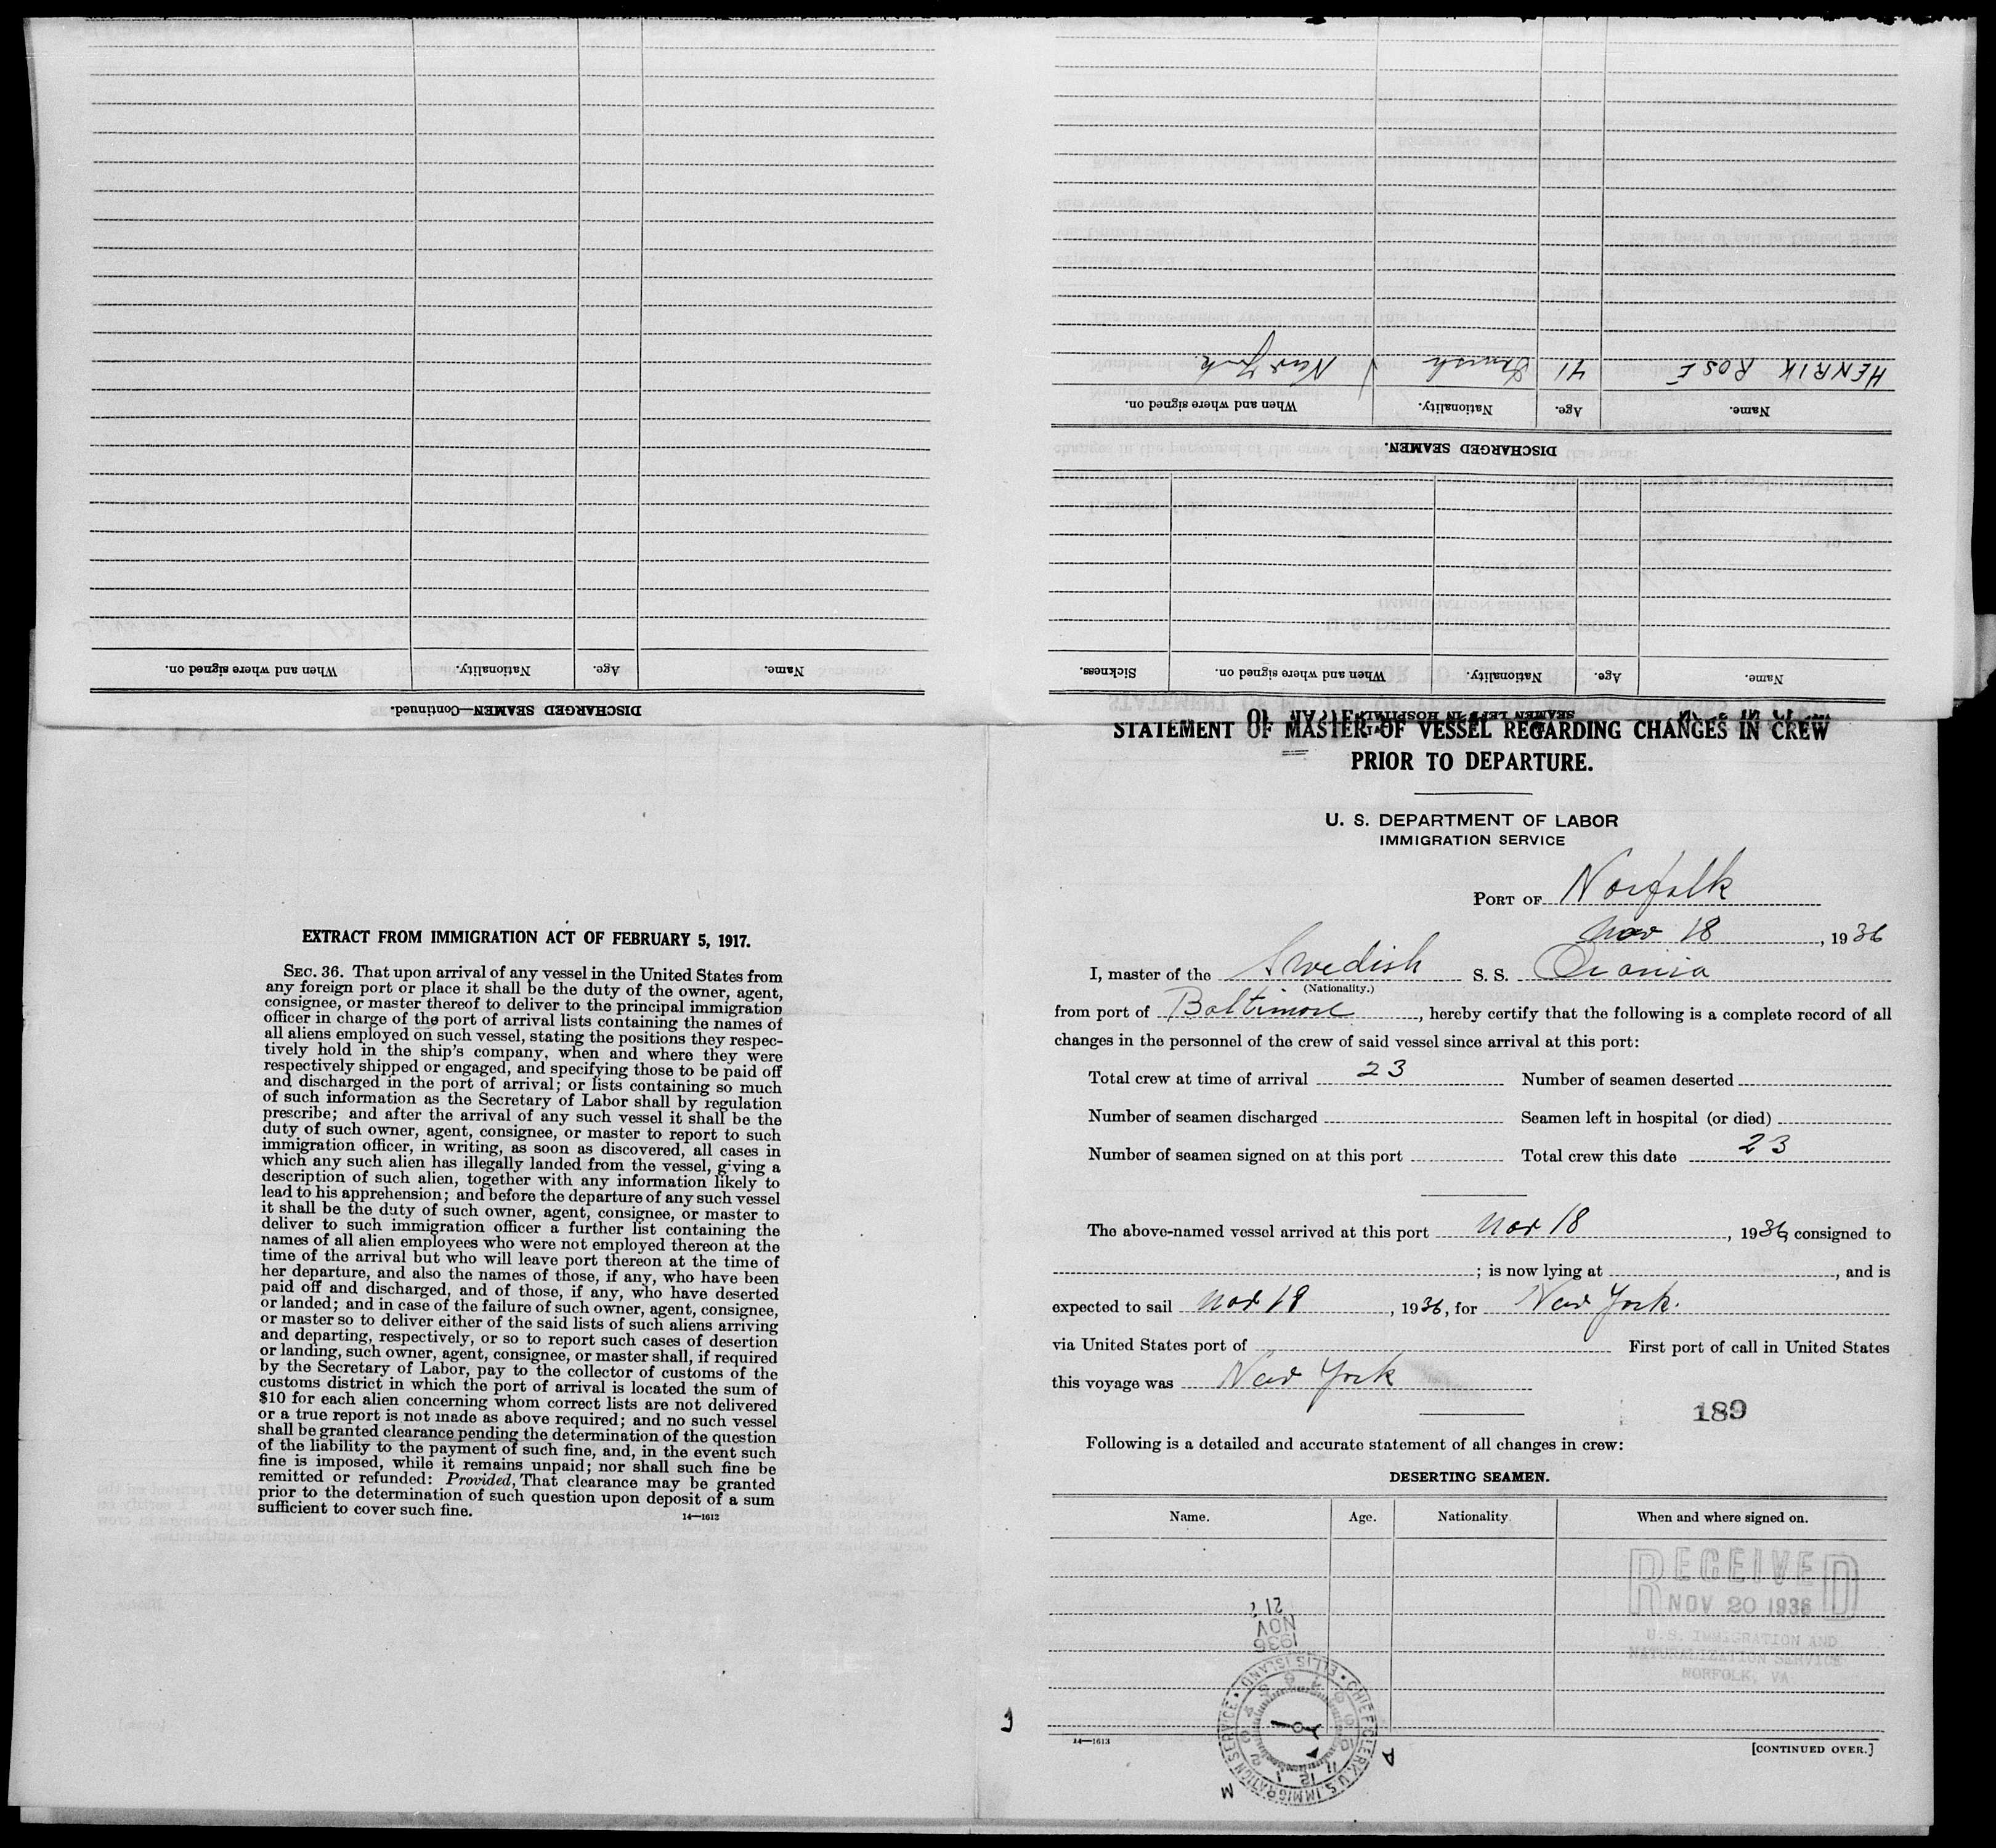 DISCHARGED SEAMEN—Continued.
Name. Age. Nationality. When and where signed on.
SEAMEN LEFT IN HOSPITAL
Name. Age. Nationality. When and where signed on. Sickness.
DISCHARGED SEAMEN.
Name. Age. Nationality. When and where signed on.
HENRIK ROSÉ 41 Danish New York
STATEMENT OF MASTER OF VESSEL REGARDING CHANGES IN CREW
PRIOR TO DEPARTURE.
U. S. DEPARTMENT OF LABOR
IMMIGRATION SERVICE
PORT OF Norfolk
Nov 18, 1936
I, master of the Swedish S. S.
(Nationality.)
from port of Baltimore, hereby certify that the following is a complete record of all
changes in the personnel of the crew of said vessel since arrival at this port:
Total crew at time of arrival 23 Number of seamen deserted
Number of seamen discharged Seamen left in hospital (or died)
Number of seamen signed on at this port Total crew this date 23
The above-named vessel arrived at this port Nov 18, 1936, consigned to
; is now lying at , and is
expected to sail Nov 18, 1936, for New York.
via United States port of First port of call in United States
this voyage was New York
189
Following is a detailed and accurate statement of all changes in crew:
DESERTING SEAMEN.
Name. Age. Nationality When and where signed on.
RECEIVED
NOV 20 1936
U.S. IMMIGRATION AND
NATURALIZATION SERVICE
NORFOLK, VA.
1936
NOV
21
CHIEF CLERK, U.S. IMMIGRATION SERVICE • ELLIS ISLAND •
A
M
14—1613
[CONTINUED OVER.]
EXTRACT FROM IMMIGRATION ACT OF FEBRUARY 5, 1917.
SEC. 36. That upon arrival of any vessel in the United States from
any foreign port or place it shall be the duty of the owner, agent,
consignee, or master thereof to deliver to the principal immigration
officer in charge of the port of arrival lists containing the names of
all aliens employed on such vessel, stating the positions they respec-
tively hold in the ship's company, when and where they were
respectively shipped or engaged, and specifying those to be paid off
and discharged in the port of arrival; or lists containing so much
of such information as the Secretary of Labor shall by regulation
prescribe; and after the arrival of any such vessel it shall be the
duty of such owner, agent, consignee, or master to report to such
immigration officer, in writing, as soon as discovered, all cases in
which any such alien has illegally landed from the vessel, giving a
description of such alien, together with any information likely to
lead to his apprehension; and before the departure of any such vessel
it shall be the duty of such owner, agent, consignee, or master to
deliver to such immigration officer a further list containing the
names of all alien employees who were not employed thereon at the
time of the arrival but who will leave port thereon at the time of
her departure, and also the names of those, if any, who have been
paid off and discharged, and of those, if any, who have deserted
or landed; and in case of the failure of such owner, agent, consignee,
or master so to deliver either of the said lists of such aliens arriving
and departing, respectively, or so to report such cases of desertion
or landing, such owner, agent, consignee, or master shall, if required
by the Secretary of Labor, pay to the collector of customs of the
customs district in which the port of arrival is located the sum of
$10 for each alien concerning whom correct lists are not delivered
or a true report is not made as above required; and no such vessel
shall be granted clearance pending the determination of the question
of the liability to the payment of such fine, and, in the event such
fine is imposed, while it remains unpaid; nor shall such fine be
remitted or refunded: Provided, That clearance may be granted
prior to the determination of such question upon deposit of a sum
sufficient to cover such fine.
14—1613